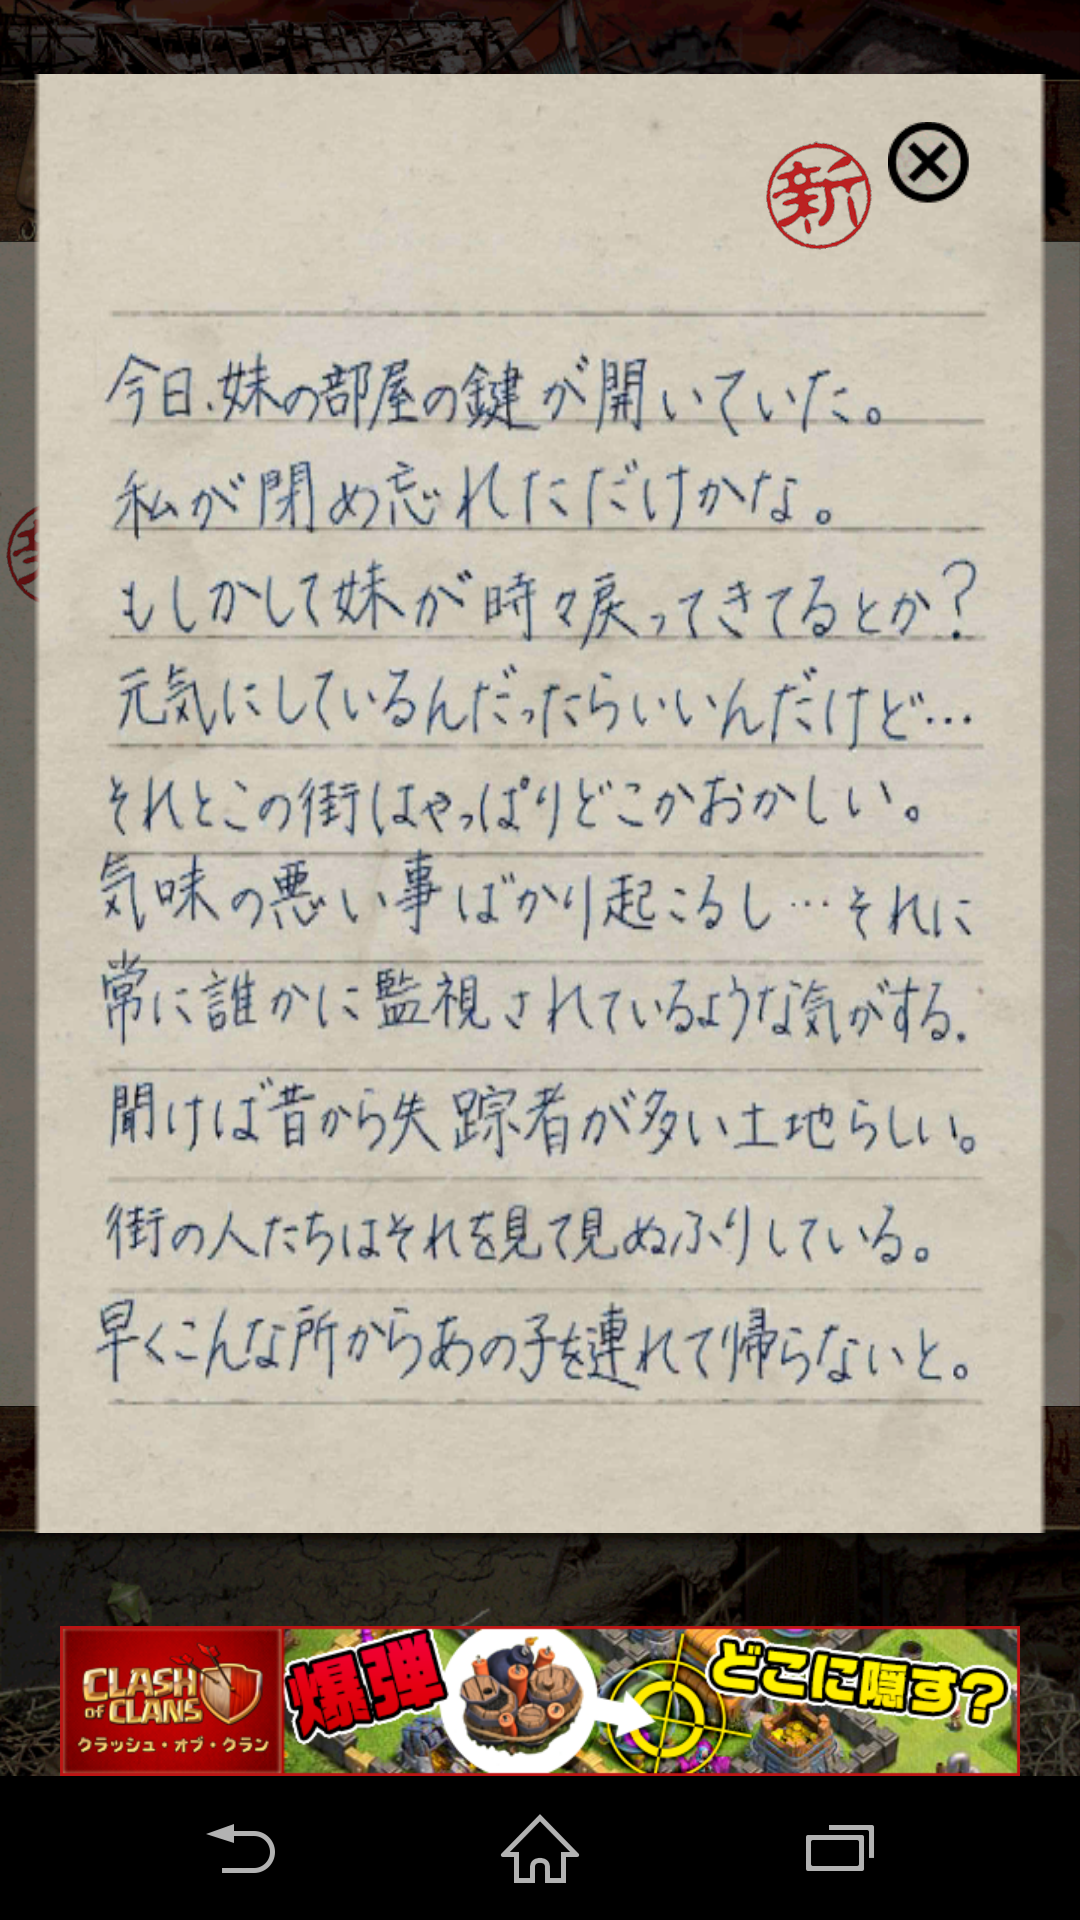 新
今日、妹の部屋の鍵が開いていた。
私が閉め忘れただけかな。
もしかして妹が時々戻ってきてるとか?
元気にしているんだったらいいんだけど…
それとこの街はやっぱりどこかおかしい。
気味の悪い事ばかり起こるし…それに
常に誰かに監視されているような気がする.
聞けば昔から失踪者が多い土地らしい。
街の人たちはそれを見て見ぬふりしている。
早くこんな所からあの子を連れて帰らないと。
CLASH
of CLANS
クラッシュ・オブ・クラン
爆弾
どこに隠す?